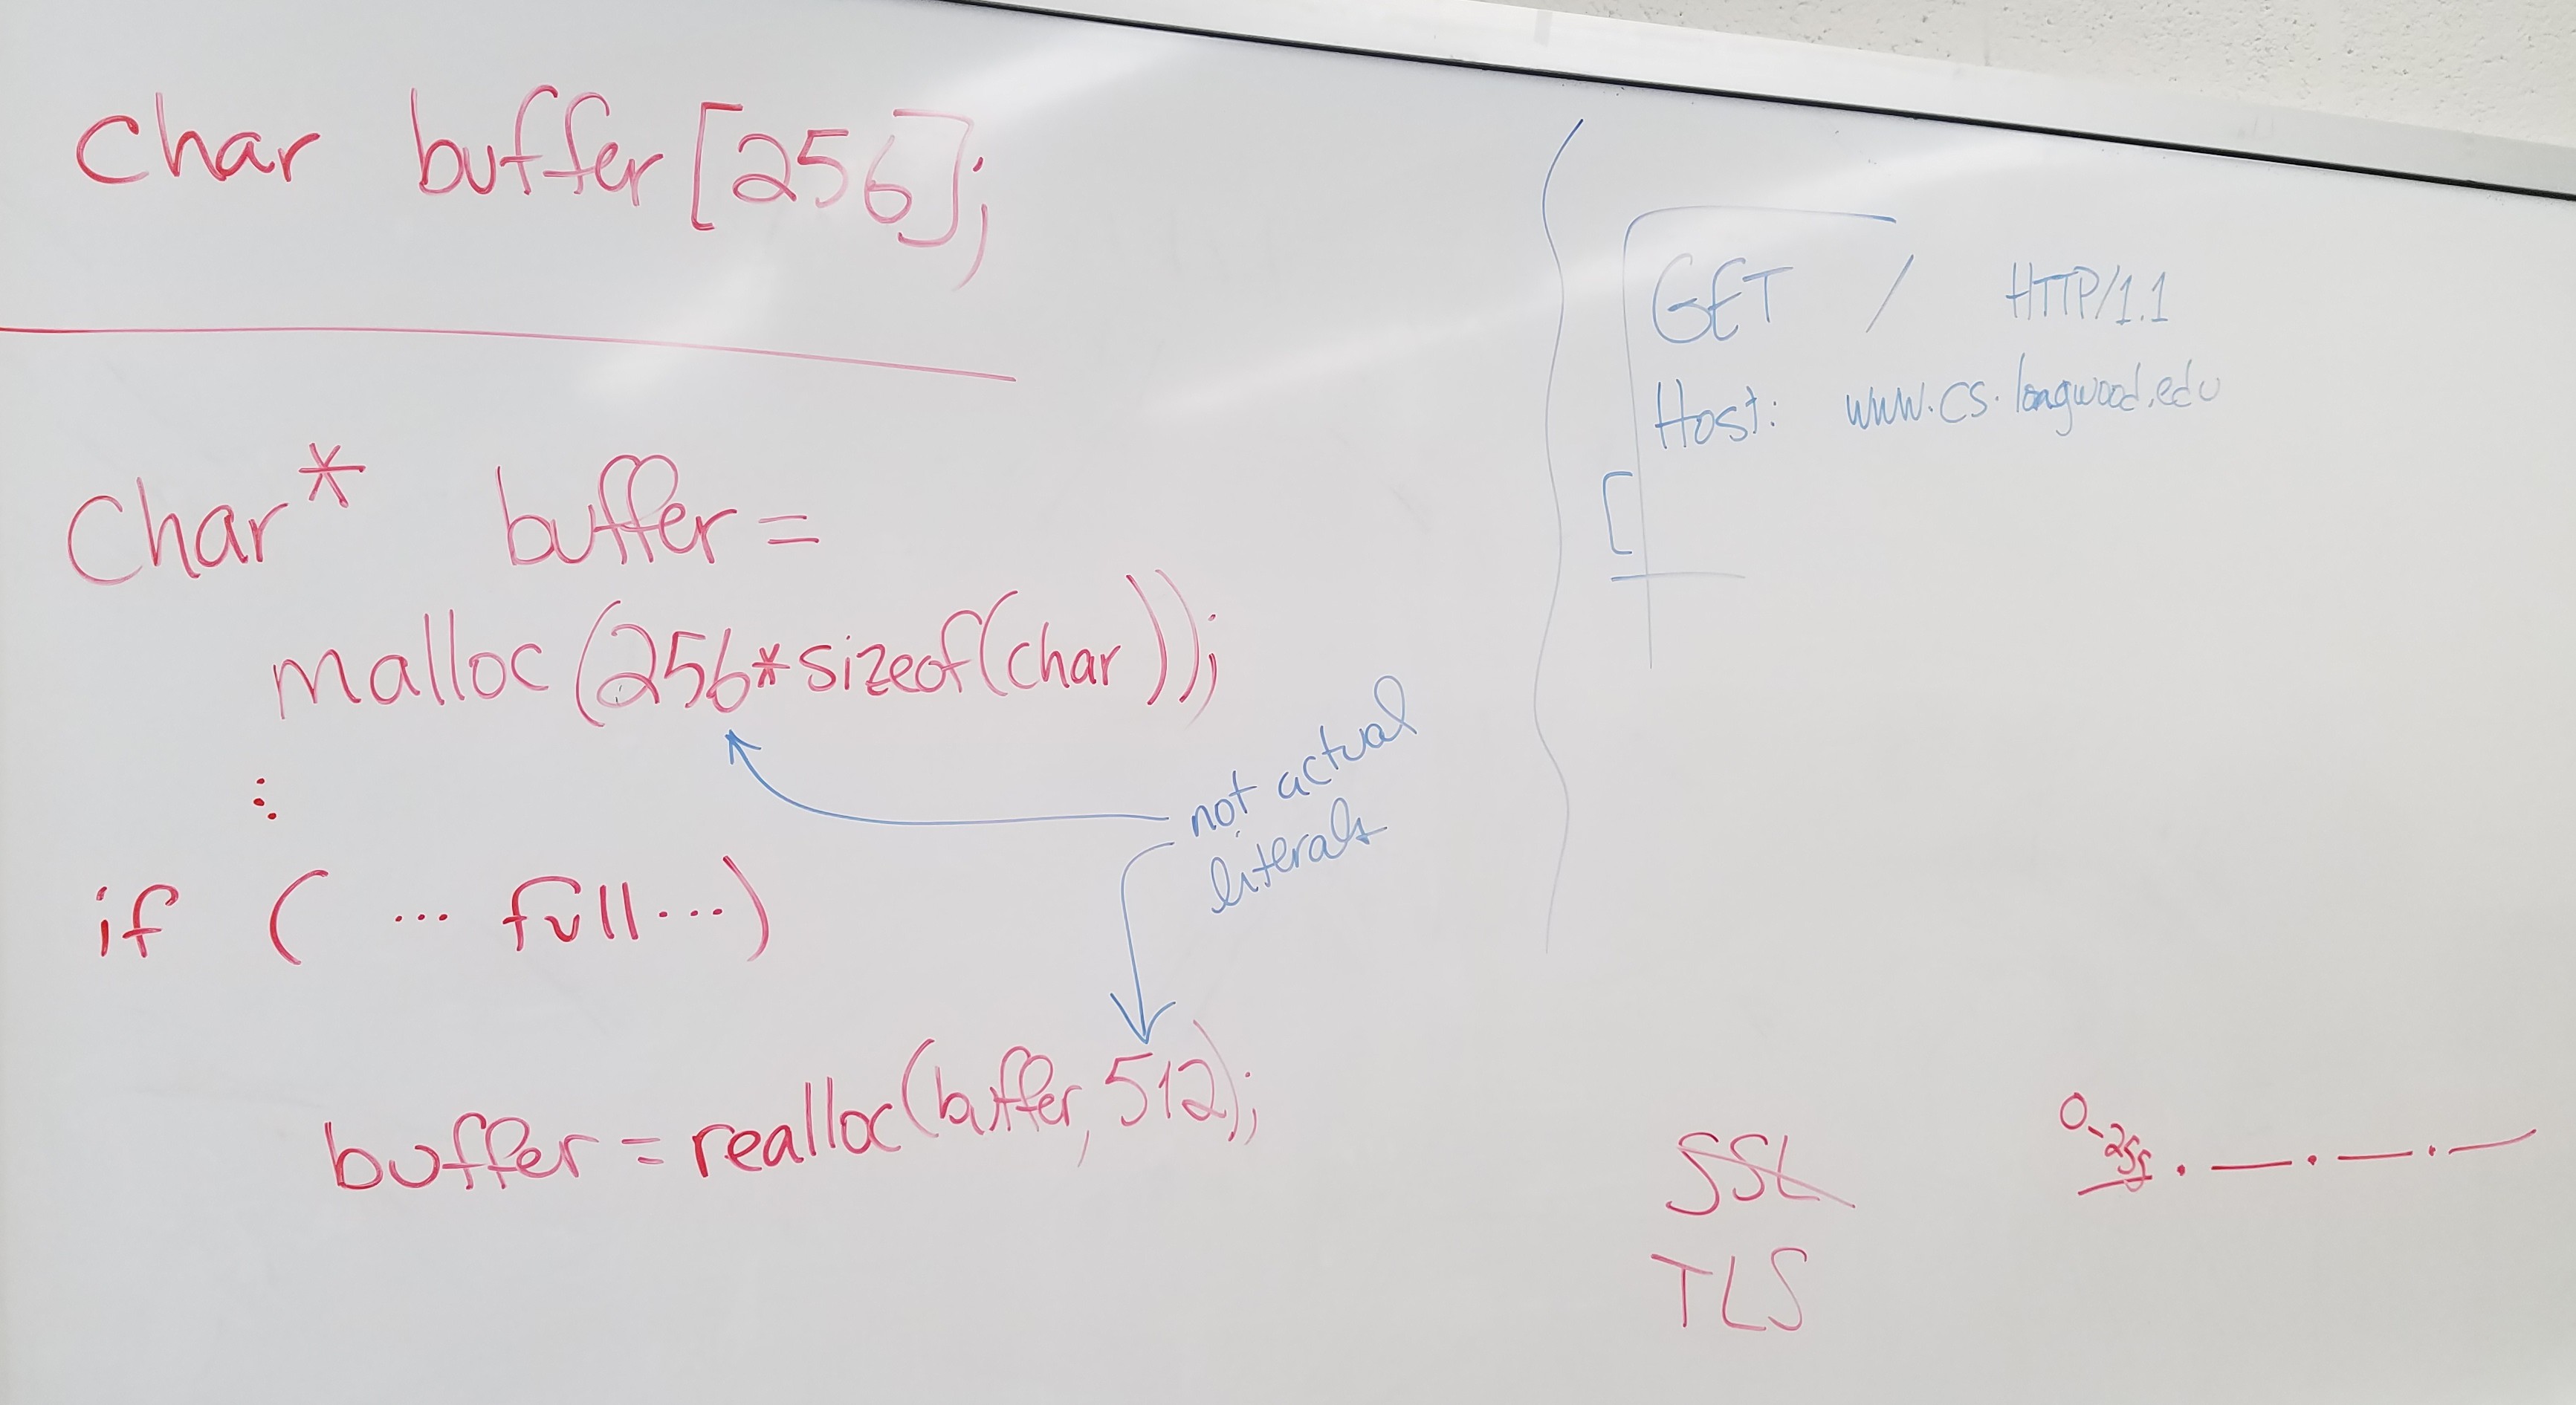 char buffer[256];
char* buffer =
malloc(256*sizeof(char));
⋮
if (... full...)
buffer = realloc(buffer, 512);
not actual
literals
GET / HTTP/1.1
Host: www.cs.longwood.edu
[
SSL
TLS
0-255 . __ . __ . __